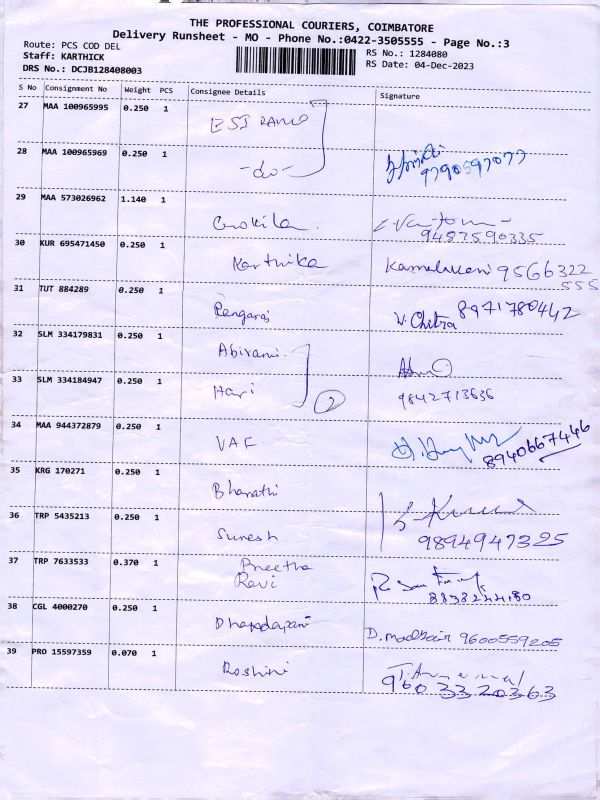 THE PROFESSIONAL COURIERS, COIMBATORE
Delivery Runsheet - MO - Phone No.:0422-3505555 - Page No.:3
Route: PCS COD DEL
Staff: KARTHICK
DRS No.: DCJB128408003
RS No.: 1284080
RS Date: 04-Dec-2023
S No Consignment No Weight PCS Consignee Details Signature
27 MAA 100965995 0.250 1 ESI
28 MAA 100965969 0.250 1 -do- 9790597077
29 MAA 573026962 1.140 1 Gokila. 9487590335
30 KUR 695471450 0.250 1 Karthika 9566322
555
31 TUT 884289 0.250 1 Rengaraj V. Chitra 8971780442
32 SLM 334179831 0.250 1 Abirami
33 SLM 334184947 0.250 1 Hari 2 9842713636
34 MAA 944372879 0.250 1 VAF 8940667446
35 KRG 170271 0.250 1 Bharathi
36 TRP 5435213 0.250 1 Suresh 9894947325
37 TRP 7633533 0.370 1 Preetha
Ravi
38 CGL 4000270 0.250 1 9600559205
39 PRO 15597359 0.070 1 Roshini 9603320363